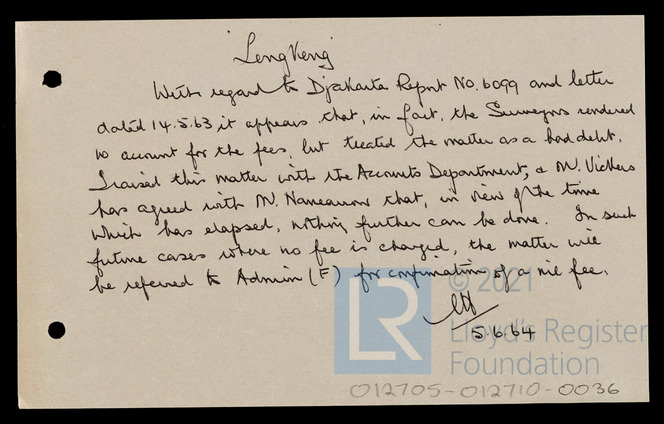 "Leng Keng"
With regard to Djakarta Report No. 6099 and letter
dated 14.5.63 it appears that, in fact, the Surveyors rendered
no account for the fees, but treated the matter as a bad debt.
I raised this matter with the Accounts Department, & Mr. Vickers
has agreed with Mr. that, in view of the time
which has elapsed, nothing further can be done. In such
future cases where no fee is charged, the matter will
be referred to Admin (F) for confirmation of a nil fee.
5.6.64
LR
© 2021
Lloyd's Register
Foundation
012705-012710-0036